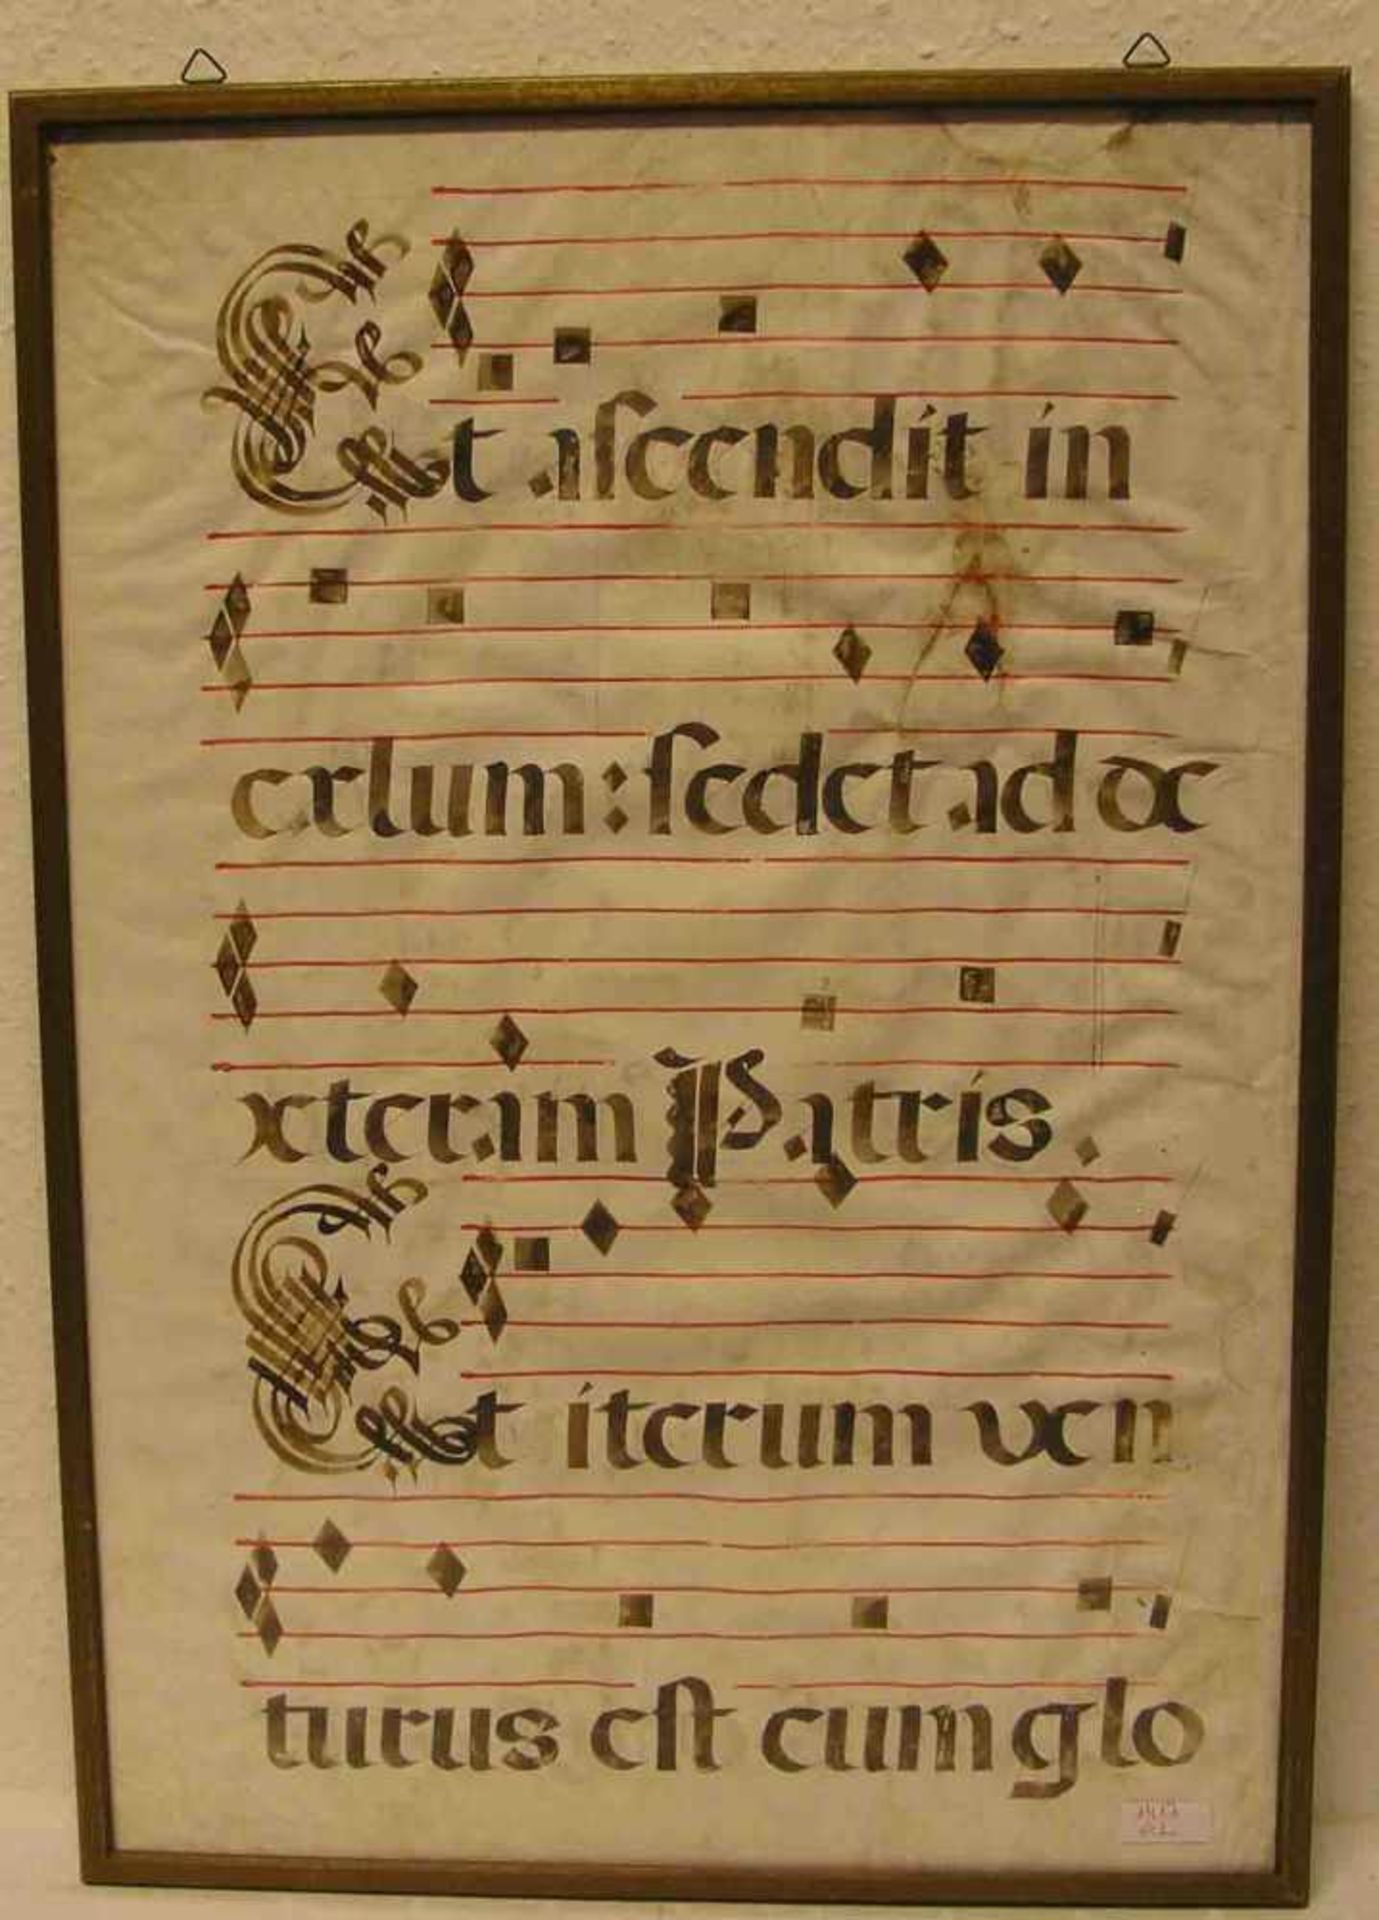 Et ascendit in
cælum: sedet ad de
xteram Patris.
Et iterum ven
turus est cum glo